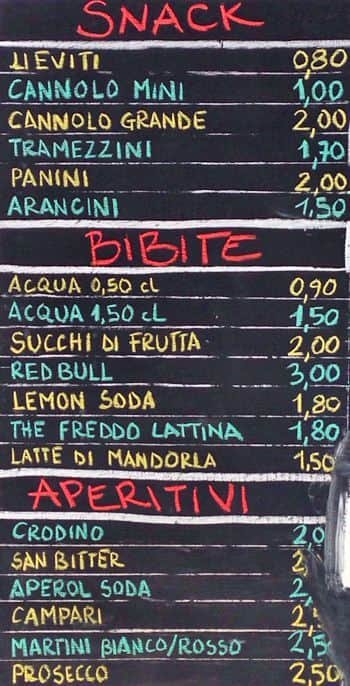 SNACK
LIEVITI 0,80
CANNOLO MINI 1,00
CANNOLO GRANDE 2,00
TRAMEZZINI 1,70
PANINI 2,00
ARANCINI 1,50
BIBITE
ACQUA 0,50 cL 0,90
ACQUA 1,50 cL 1,50
SUCCHI DI FRUTTA 2,00
RED BULL 3,00
LEMON SODA 1,80
THE FREDDO LATTINA 1,80
LATTE DI MANDORLA 1,50
APERITIVI
CRODINO
SAN BITTER
APEROL SODA
CAMPARI
MARTINI BIANCO/ROSSO 2,50
PROSECCO 2,50